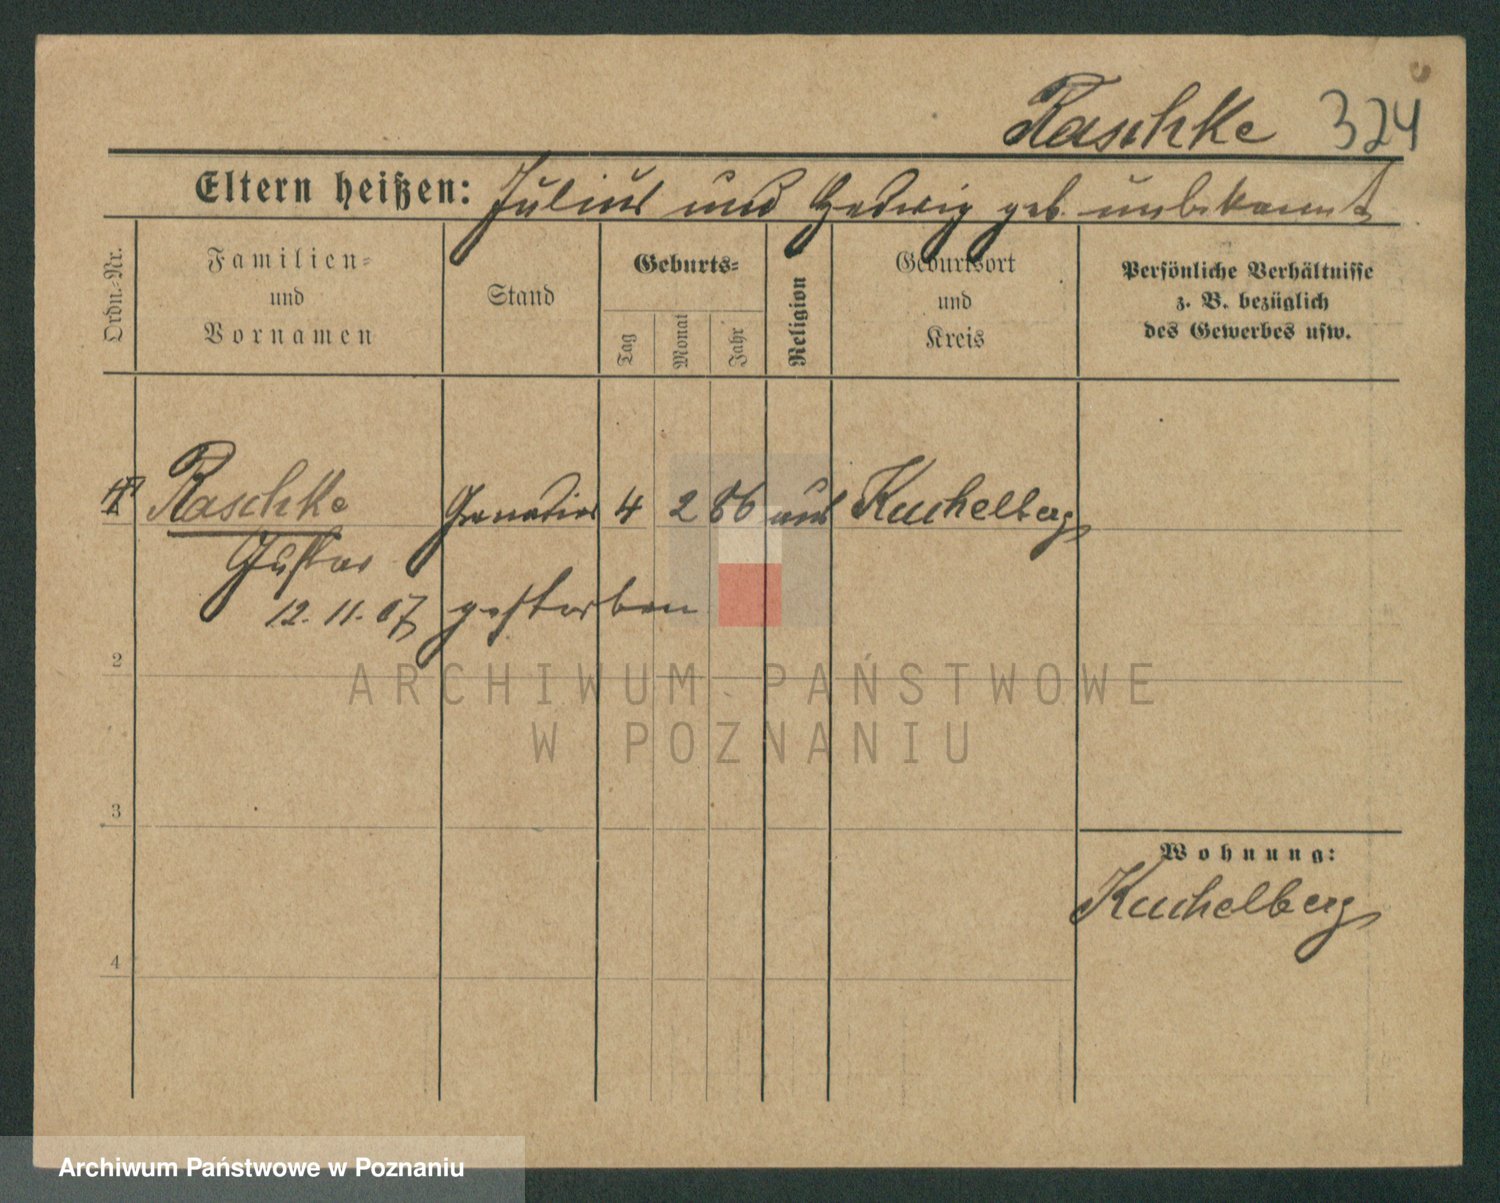 Raschke 324
Eltern heißen: Julius und Hedwig geb. unbekannt
Ordn.-Nr.
Familien-
und
Vornamen
Stand
Geburts-
Tag
Monat
Jahr
Religion
Geburtsort
und
Kreis
Persönliche Verhältnisse
z. B. bezüglich
des Gewerbes usw.
Raschke Grenadier 4 2 86 Kuchelberg
Gustav
12.11.07 gestorben
2
ARCHIWUM PAŃSTWOWE
W POZNANIU
3
Wohnung:
Kuchelberg
4
Archiwum Państwowe w Poznaniu